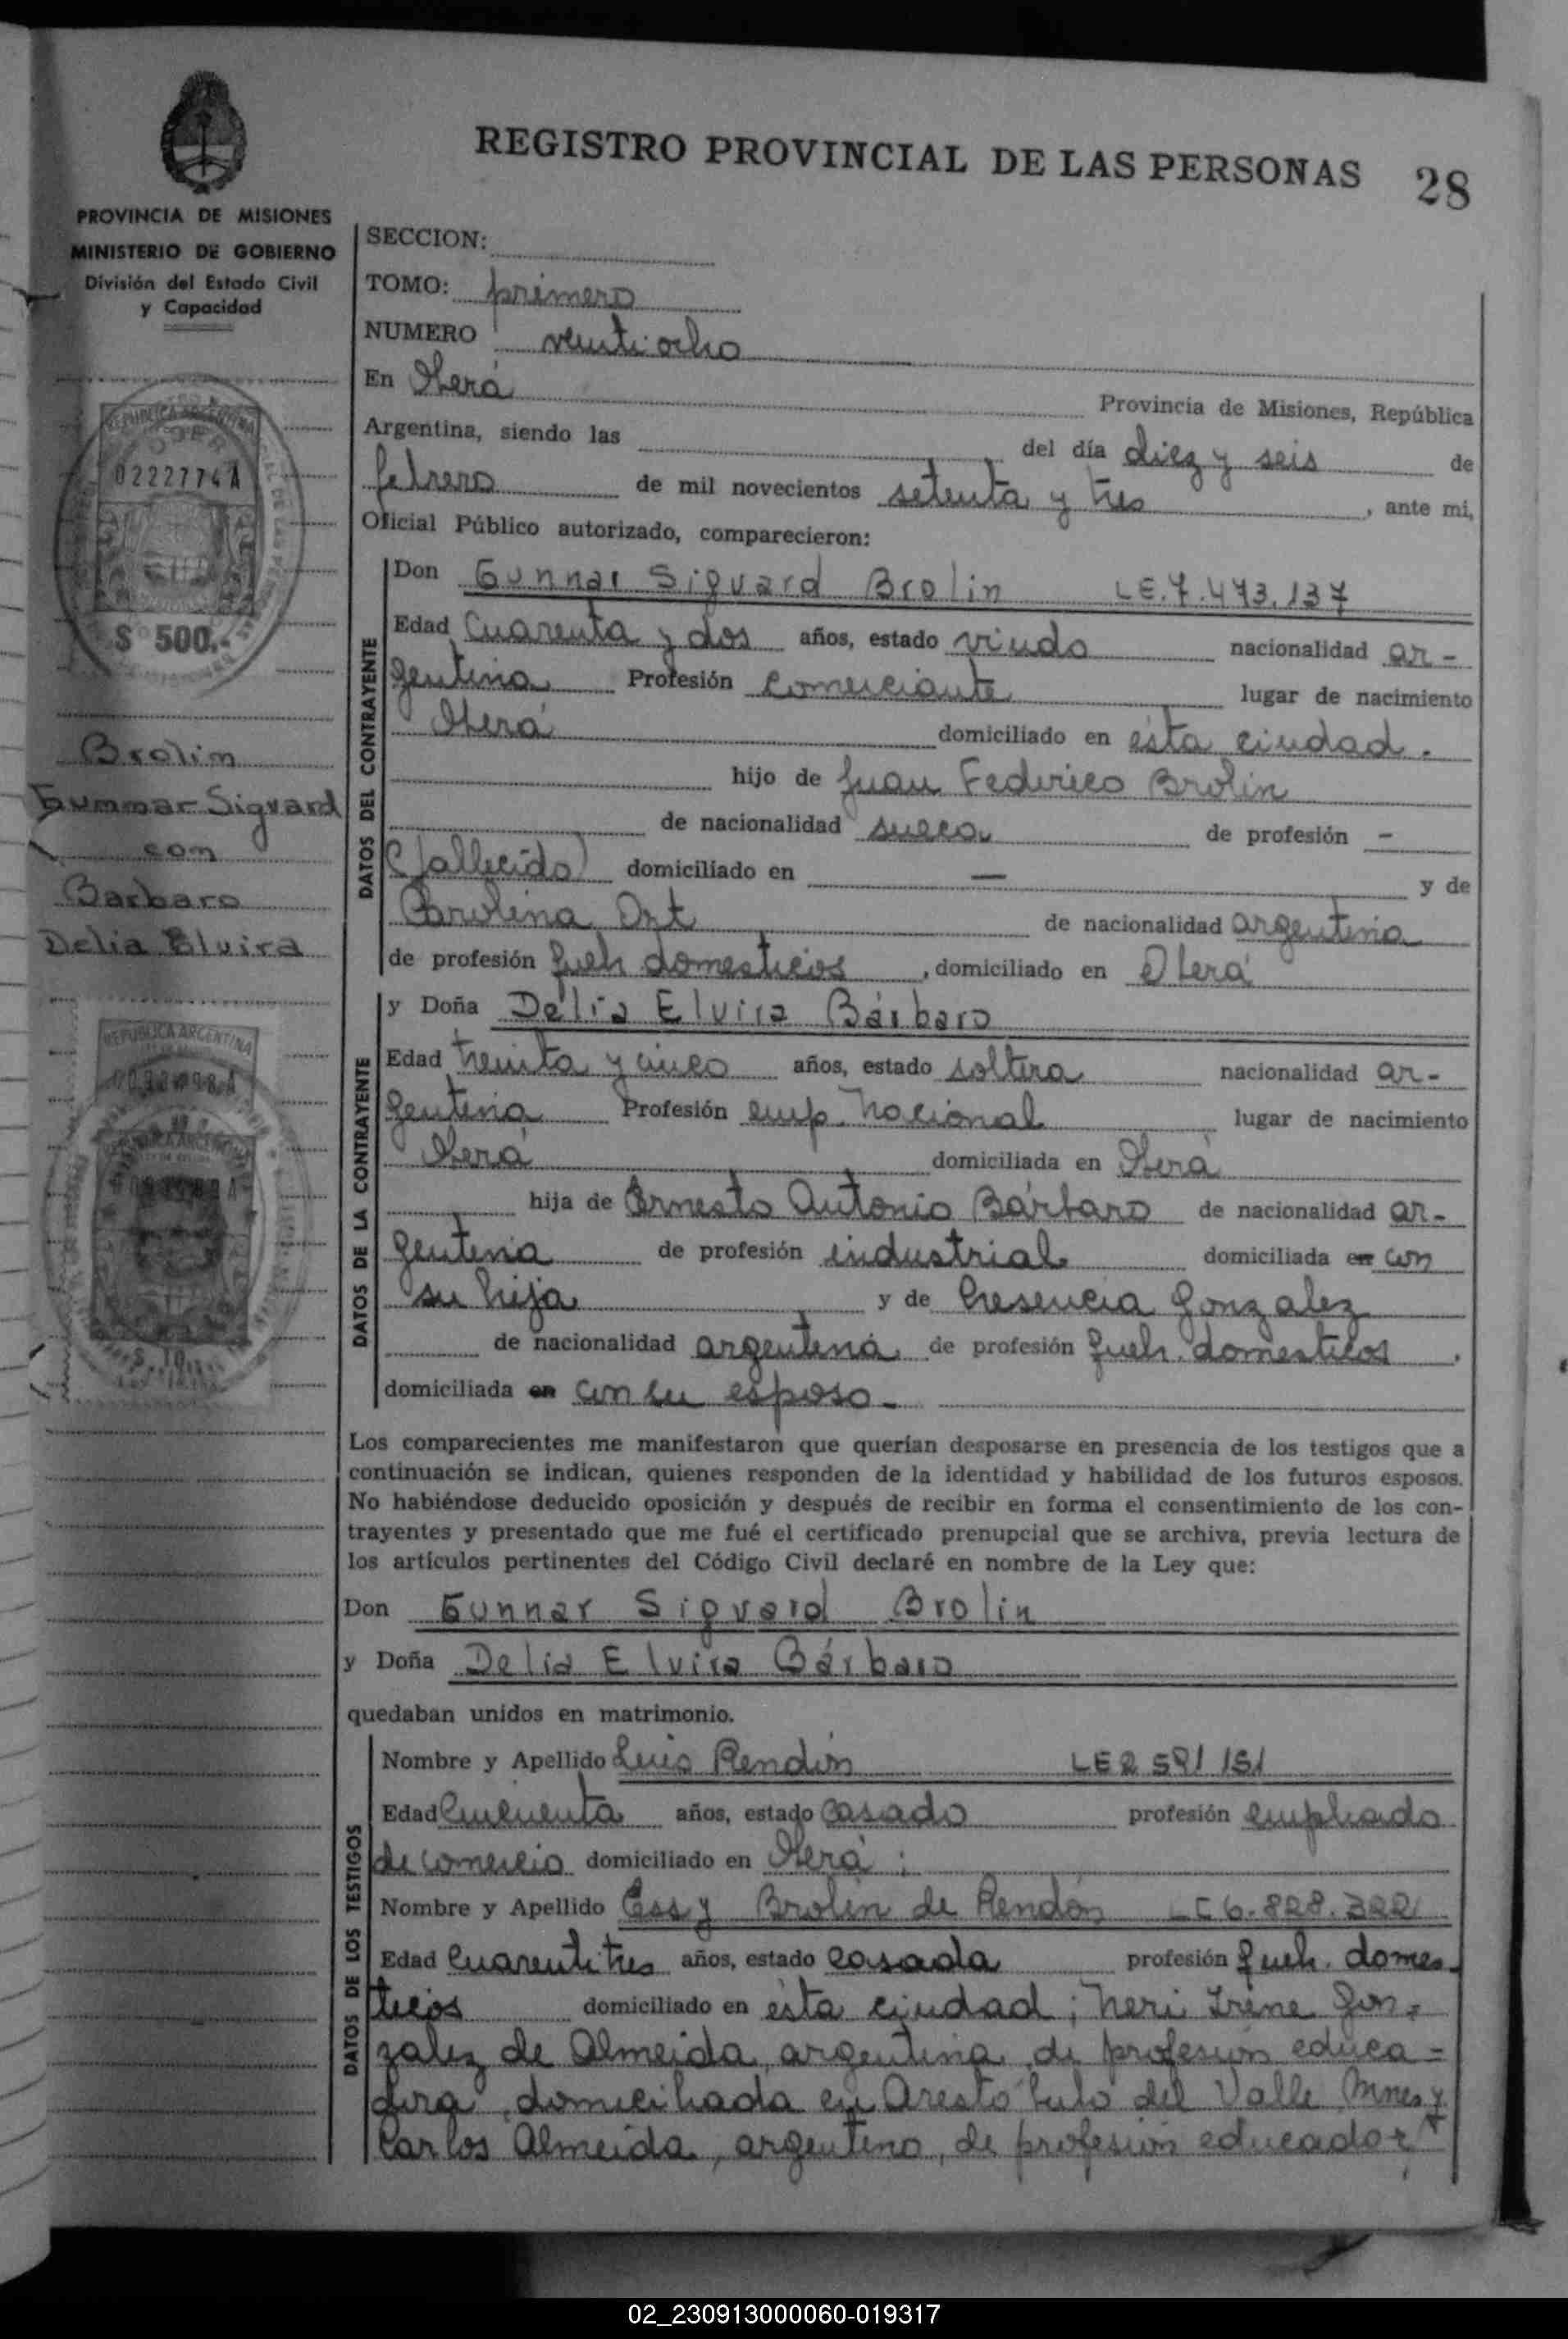 REGISTRO PROVINCIAL DE LAS PERSONAS 28
PROVINCIA DE MISIONES
MINISTERIO DE GOBIERNO
División del Estado Civil
y Capacidad
SECCION:
TOMO: primero
NUMERO veintiocho
En Oberá Provincia de Misiones, República
Argentina, siendo las del día diez y seis de
febrero de mil novecientos setenta y tres, ante mi,
Oficial Público autorizado, comparecieron:
REPUBLICA ARGENTINA
0222774A
$ 500.-
Brolin
Gunnar Sigvard
con
Barbaro
Delia Elvira
REPUBLICA ARGENTINA
DATOS DEL CONTRAYENTE
Don Gunnar Sigvard Brolin LE.7.473.137
Edad Cuarenta y dos años, estado viudo nacionalidad ar-
gentina Profesión comerciante lugar de nacimiento
Oberá domiciliado en ésta ciudad.
hijo de Juan Federico Brolin
de nacionalidad sueca de profesión -
(fallecido) domiciliado en — y de
Carolina Ort de nacionalidad argentina
de profesión queh domesticos, domiciliado en Oberá
DATOS DE LA CONTRAYENTE
y Doña Delia Elvira Bárbaro
Edad treinta y cinco años, estado soltera nacionalidad ar-
gentina Profesión emp. nacional lugar de nacimiento
Oberá domiciliada en Oberá
hija de Ernesto Antonio Bárbaro de nacionalidad ar-
gentina de profesión industrial domiciliada en con
su hija y de Cresencia Gonzalez
de nacionalidad argentina de profesión queh. domesticos,
domiciliada en con su esposo.-
Los comparecientes me manifestaron que querían desposarse en presencia de los testigos que a
continuación se indican, quienes responden de la identidad y habilidad de los futuros esposos.
No habiéndose deducido oposición y después de recibir en forma el consentimiento de los con-
trayentes y presentado que me fué el certificado prenupcial que se archiva, previa lectura de
los artículos pertinentes del Código Civil declaré en nombre de la Ley que:
Don Gunnar Sigvard Brolin
y Doña Delia Elvira Bárbaro
quedaban unidos en matrimonio.
DATOS DE LOS TESTIGOS
Nombre y Apellido Luis Rendón LE 2 581 151
Edad Cincuenta años, estado casado profesión empleado
de comercio domiciliado en Oberá;
Nombre y Apellido Essy Brolin de Rendón LC 6.828.322
Edad Cuarentitres años, estado casada profesión queh. domes-
ticos domiciliado en ésta ciudad; Neri Irene Gon-
zalez de Almeida, argentina, de profesión educa=
dora, domiciliada en Aristóbulo del Valle Mnes y
Carlos Almeida, argentino, de profesión educador
02_230913000060-019317